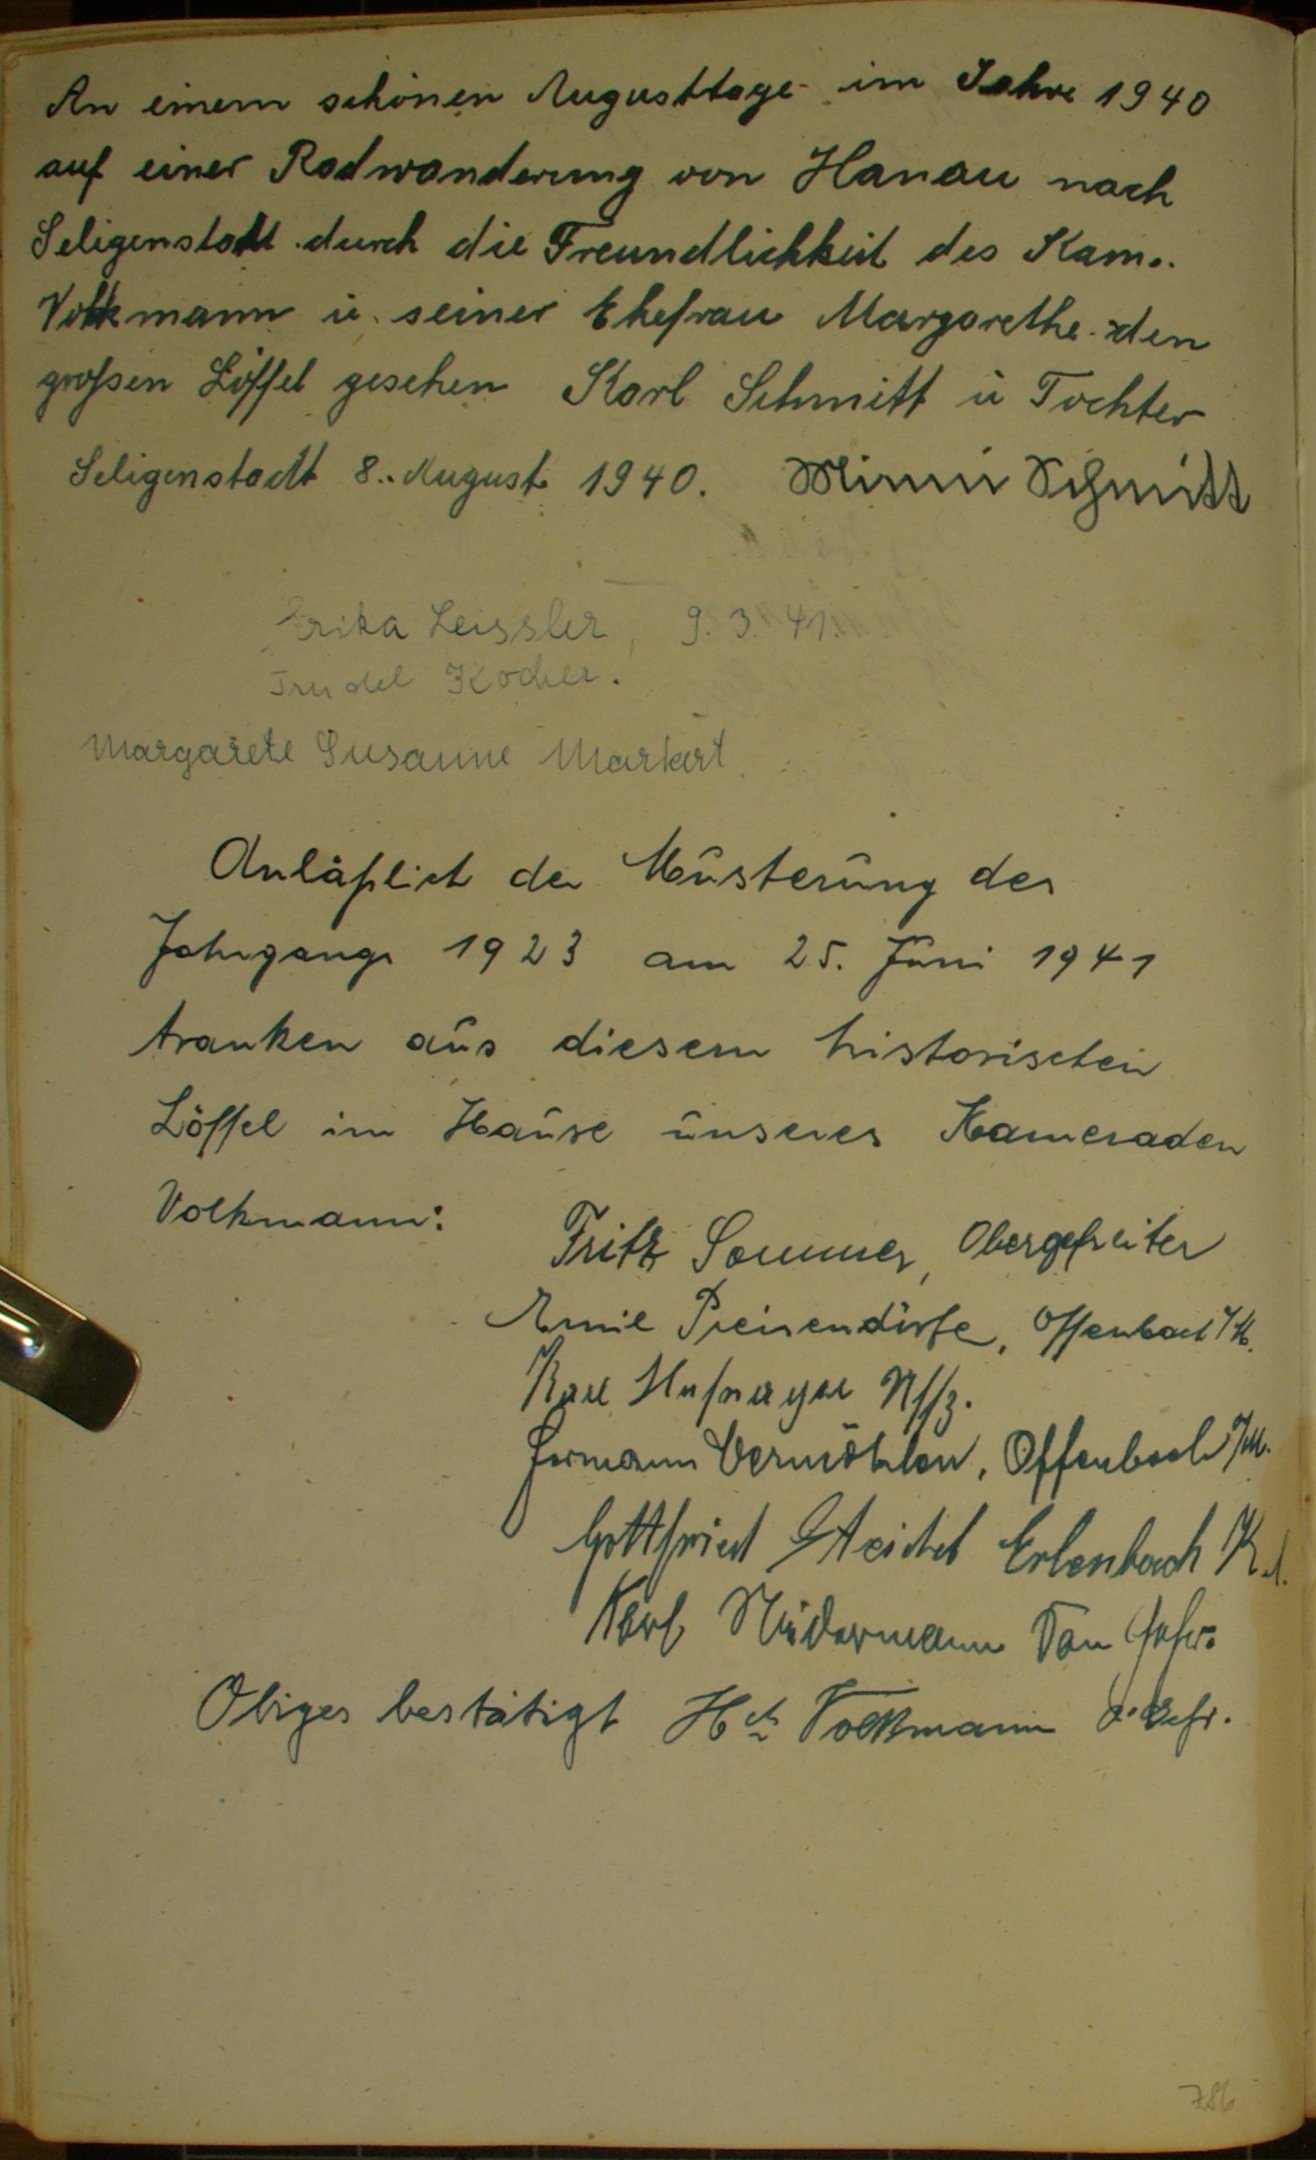 An einem schönen Augusttage im Jahre 1940
auf einer Radwanderung von Hanau nach
Seligenstadt durch die Freundlichkeit des Kam.
Volkmann u. seiner Ehefrau Margarethe den
großen Löffel gesehen Karl Schmitt u Tochter
Seligenstadt 8. August 1940. Minni Schmitt
Erika Leissler, 9. 3. 41.
Trudel Kocher.
Margarete Susanne Markert
Anläßlich der Musterung des
Jahrgangs 1923 am 25. Juni 1941
tranken aus diesem historischen
Löffel im Hause unseres Kameraden
Volkmann:
Fritz Sommer, Obergefreiter
Emil Preisendörfe, Offenbach a/M.
Karl Hufnagel Uffz.
Hermann Vermöhlen, Offenbach a/M.
Gottfried Erlenbach
Karl Gefr.
Obiges bestätigt Hch Volkmann O. Gefr.
786